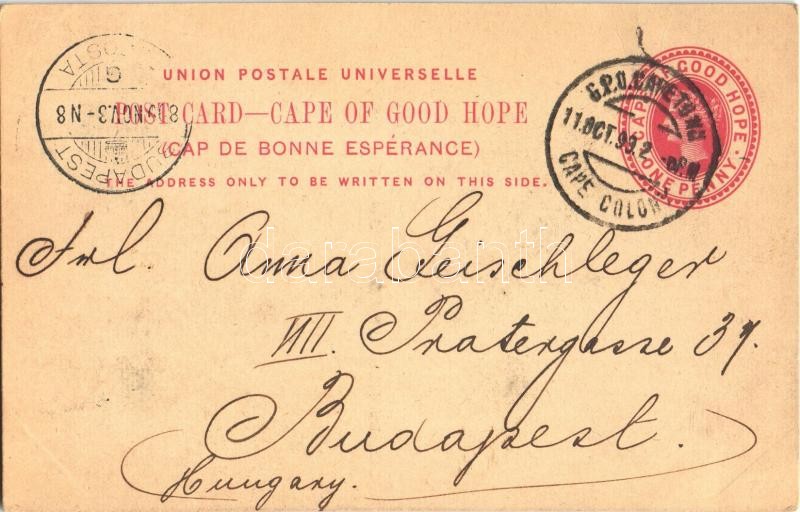 UNION POSTALE UNIVERSELLE
POST CARD—CAPE OF GOOD HOPE
(CAP DE BONNE ESPÉRANCE)
THE ADDRESS ONLY TO BE WRITTEN ON THIS SIDE.
CAPE OF GOOD HOPE.
ONE PENNY
G.P.O. CAPE-TOWN
11.OCT.99.2
CAPE COLON
BUDAPEST
NOV.3-N8
G
Frl. Anna Geischleger
VIII. Pratergasse 37.
Budapest.
Hungary.
darabanth